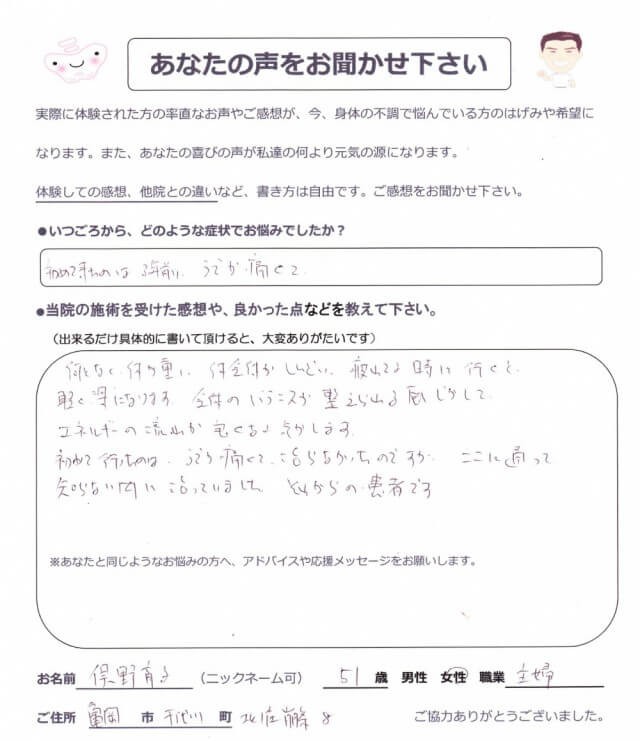 あなたの声をお聞かせ下さい
実際に体験された方の率直なお声やご感想が、今、身体の不調で悩んでいる方のはげみや希望に
なります。また、あなたの喜びの声が私達の何より元気の源になります。
体験しての感想、他院との違いなど、書き方は自由です。ご感想をお聞かせ下さい。
●いつごろから、どのような症状でお悩みでしたか？
初めて来たのは 3年前、うでが痛くて
●当院の施術を受けた感想や、良かった点などを教えて下さい。
（出来るだけ具体的に書いて頂けると、大変ありがたいです）
何となく 体が重い、体全体がしんどい、疲れてる時に行くと、
軽く楽になります。全体のバランスが整えられる感じがして、
エネルギーの流れが 良くなる気がします。
初めて行ったのは、うでが痛くて、治らなかったのですが、ここに通って
知らない内に治っていました。それからの患者です
※あなたと同じようなお悩みの方へ、アドバイスや応援メッセージをお願いします。
お名前 俣野育子 （ニックネーム可） 51 歳 男性 女性 職業 主婦
ご住所 亀岡 市 千代川 町 ご協力ありがとうございました。